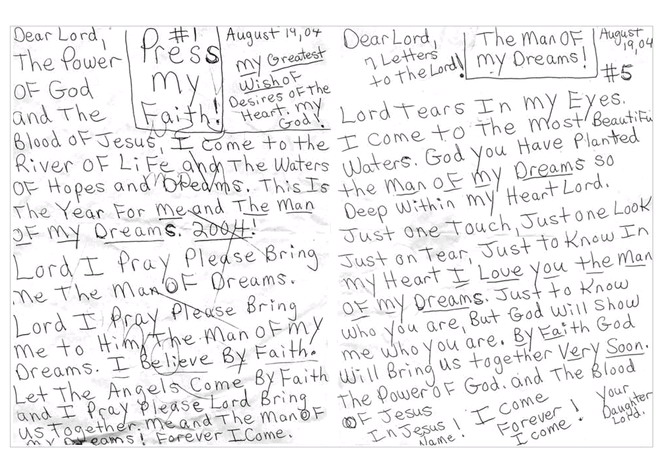 Dear Lord,
The Power
OF God
and The
#1
Press
my
Faith!
August 19, 04
my Greatest
Wish OF
Desires OF the
Heart. my
God!
Blood OF Jesus, I come to the
River OF LiFe and The Waters
OF Hopes and Dreams. This Is
The Year For me and The Man
OF my Dreams. 2004!
Lord I Pray Please Bring
me The Man OF Dreams.
Lord I Pray Please Bring
me to Him, The Man OF my
Dreams. I Believe By Faith.
Let The Angels Come By Faith
and I Pray Please Lord Bring
us Together. Me and The Man OF
my Dreams! Forever I Come.
Dear Lord,
7 Letters
to the Lord!
The Man OF
my Dreams!
August
19, 04
#5
Lord Tears In my Eyes.
I Come to The most Beautiful
Waters. God you Have Planted
the Man OF my Dreams so
Deep within my Heart Lord.
Just one Touch, Just one Look
Just on Tear, Just to Know In
my Heart I Love you the Man
OF my Dreams. Just to Know
who you are, But God will Show
me who you are. By Faith God
Will Bring us together Very Soon.
The Power OF God. and The Blood
OF Jesus
In Jesus
Name!
I Come
Forever!
I come!
Your
Daughter
Lord.